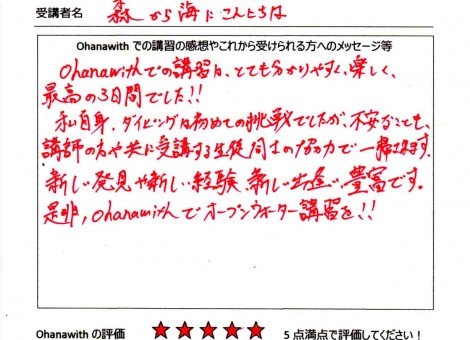 受講者名 森から海にこんにちは
Ohanawith での講習の感想やこれから受けられる方へのメッセージ等
Ohanawithでの講習は、とても分かりやすく、楽しく、
最高の3日間でした!!
私自身、ダイビングは初めての挑戦でしたが、不安なことも、
講師の方や共に受講する生徒同士の協力で一掃されます。
新しい発見や新しい経験、新しい出逢い豊富です。
是非、Ohanawithでオープンウォーター講習を!!
Ohanawith の評価 ★★★★★ 5 点満点で評価してください!